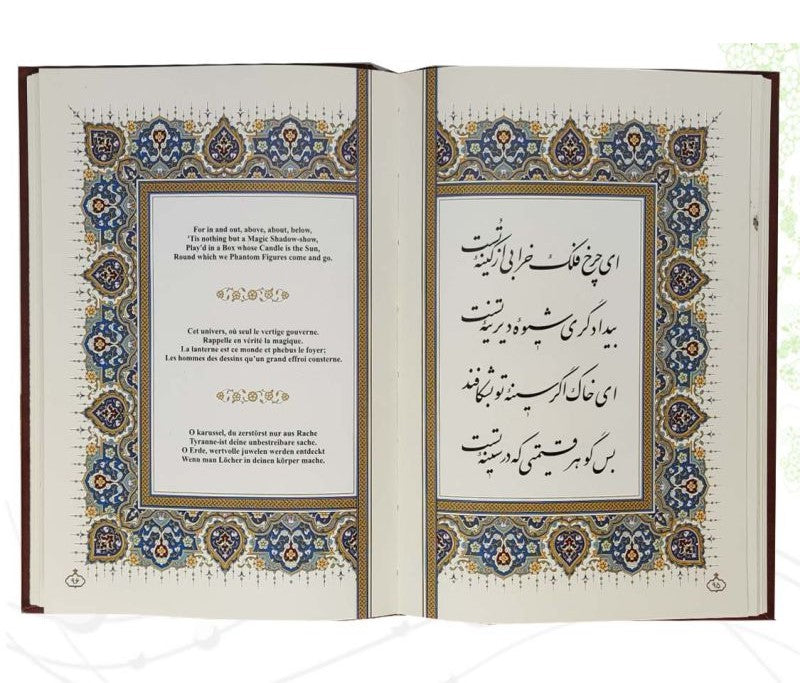 For in and out, above, about, below,
'Tis nothing but a Magic Shadow-show,
Play'd in a Box whose Candle is the Sun,
Round which we Phantom Figures come and go.
Cet univers, où seul le vertige gouverne.
Rappelle en vérité la magique.
La lanterne est ce monde et phebus le foyer;
Les hommes des dessins qu'un grand effroi consterne.
O karussel, du zerstörst nur aus Rache
Tyranne-ist deine unbestreibare sache.
O Erde, wertvolle juwelen werden entdeckt
Wenn man Löcher in deinen körper mache.
۹۶
ای چرخ فلک خرابی از کینه تست
بیدادگری شیوه دیرینه تست
ای خاک اگر سینه تو بشکافند
بس گوهر قیمتی که در سینه تست
۹۵